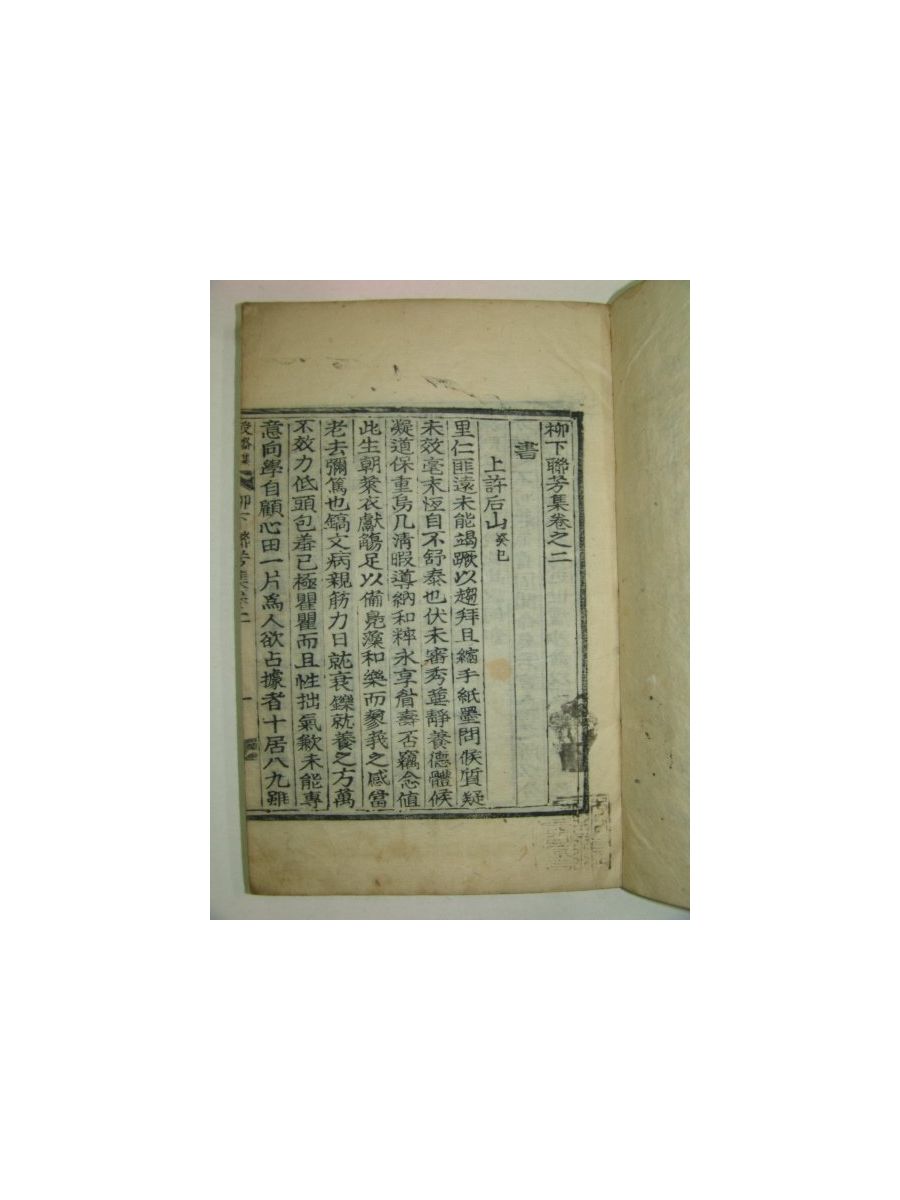 柳下聯芳集卷之二
書
上許后山 癸巳
里仁匪遠未能竭蹶以趨拜且縮手紙墨問候質疑
未效毫末恒自不舒泰也伏未審秀葽靜養德體候
凝道保重烏几淸暇導納和粹永享耆壽否竊念値
此生朝萊衣獻觴足以備鳧藻和樂而蓼莪之感當
老去彌篤也鎬文病親筋力日就衰鑠就養之方萬
不效力低頭包羞已極瞿瞿而且性拙氣歉未能專
意向學自顧心田一片爲人欲占據者十居八九雖
柳下聯芳集卷二
一